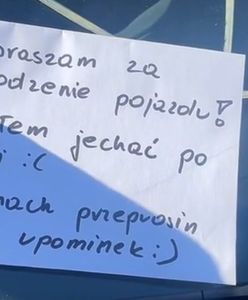 praszam za
odzenie pojazdu!
łem jechać po
i :(
mach przeprosin
upominek :)